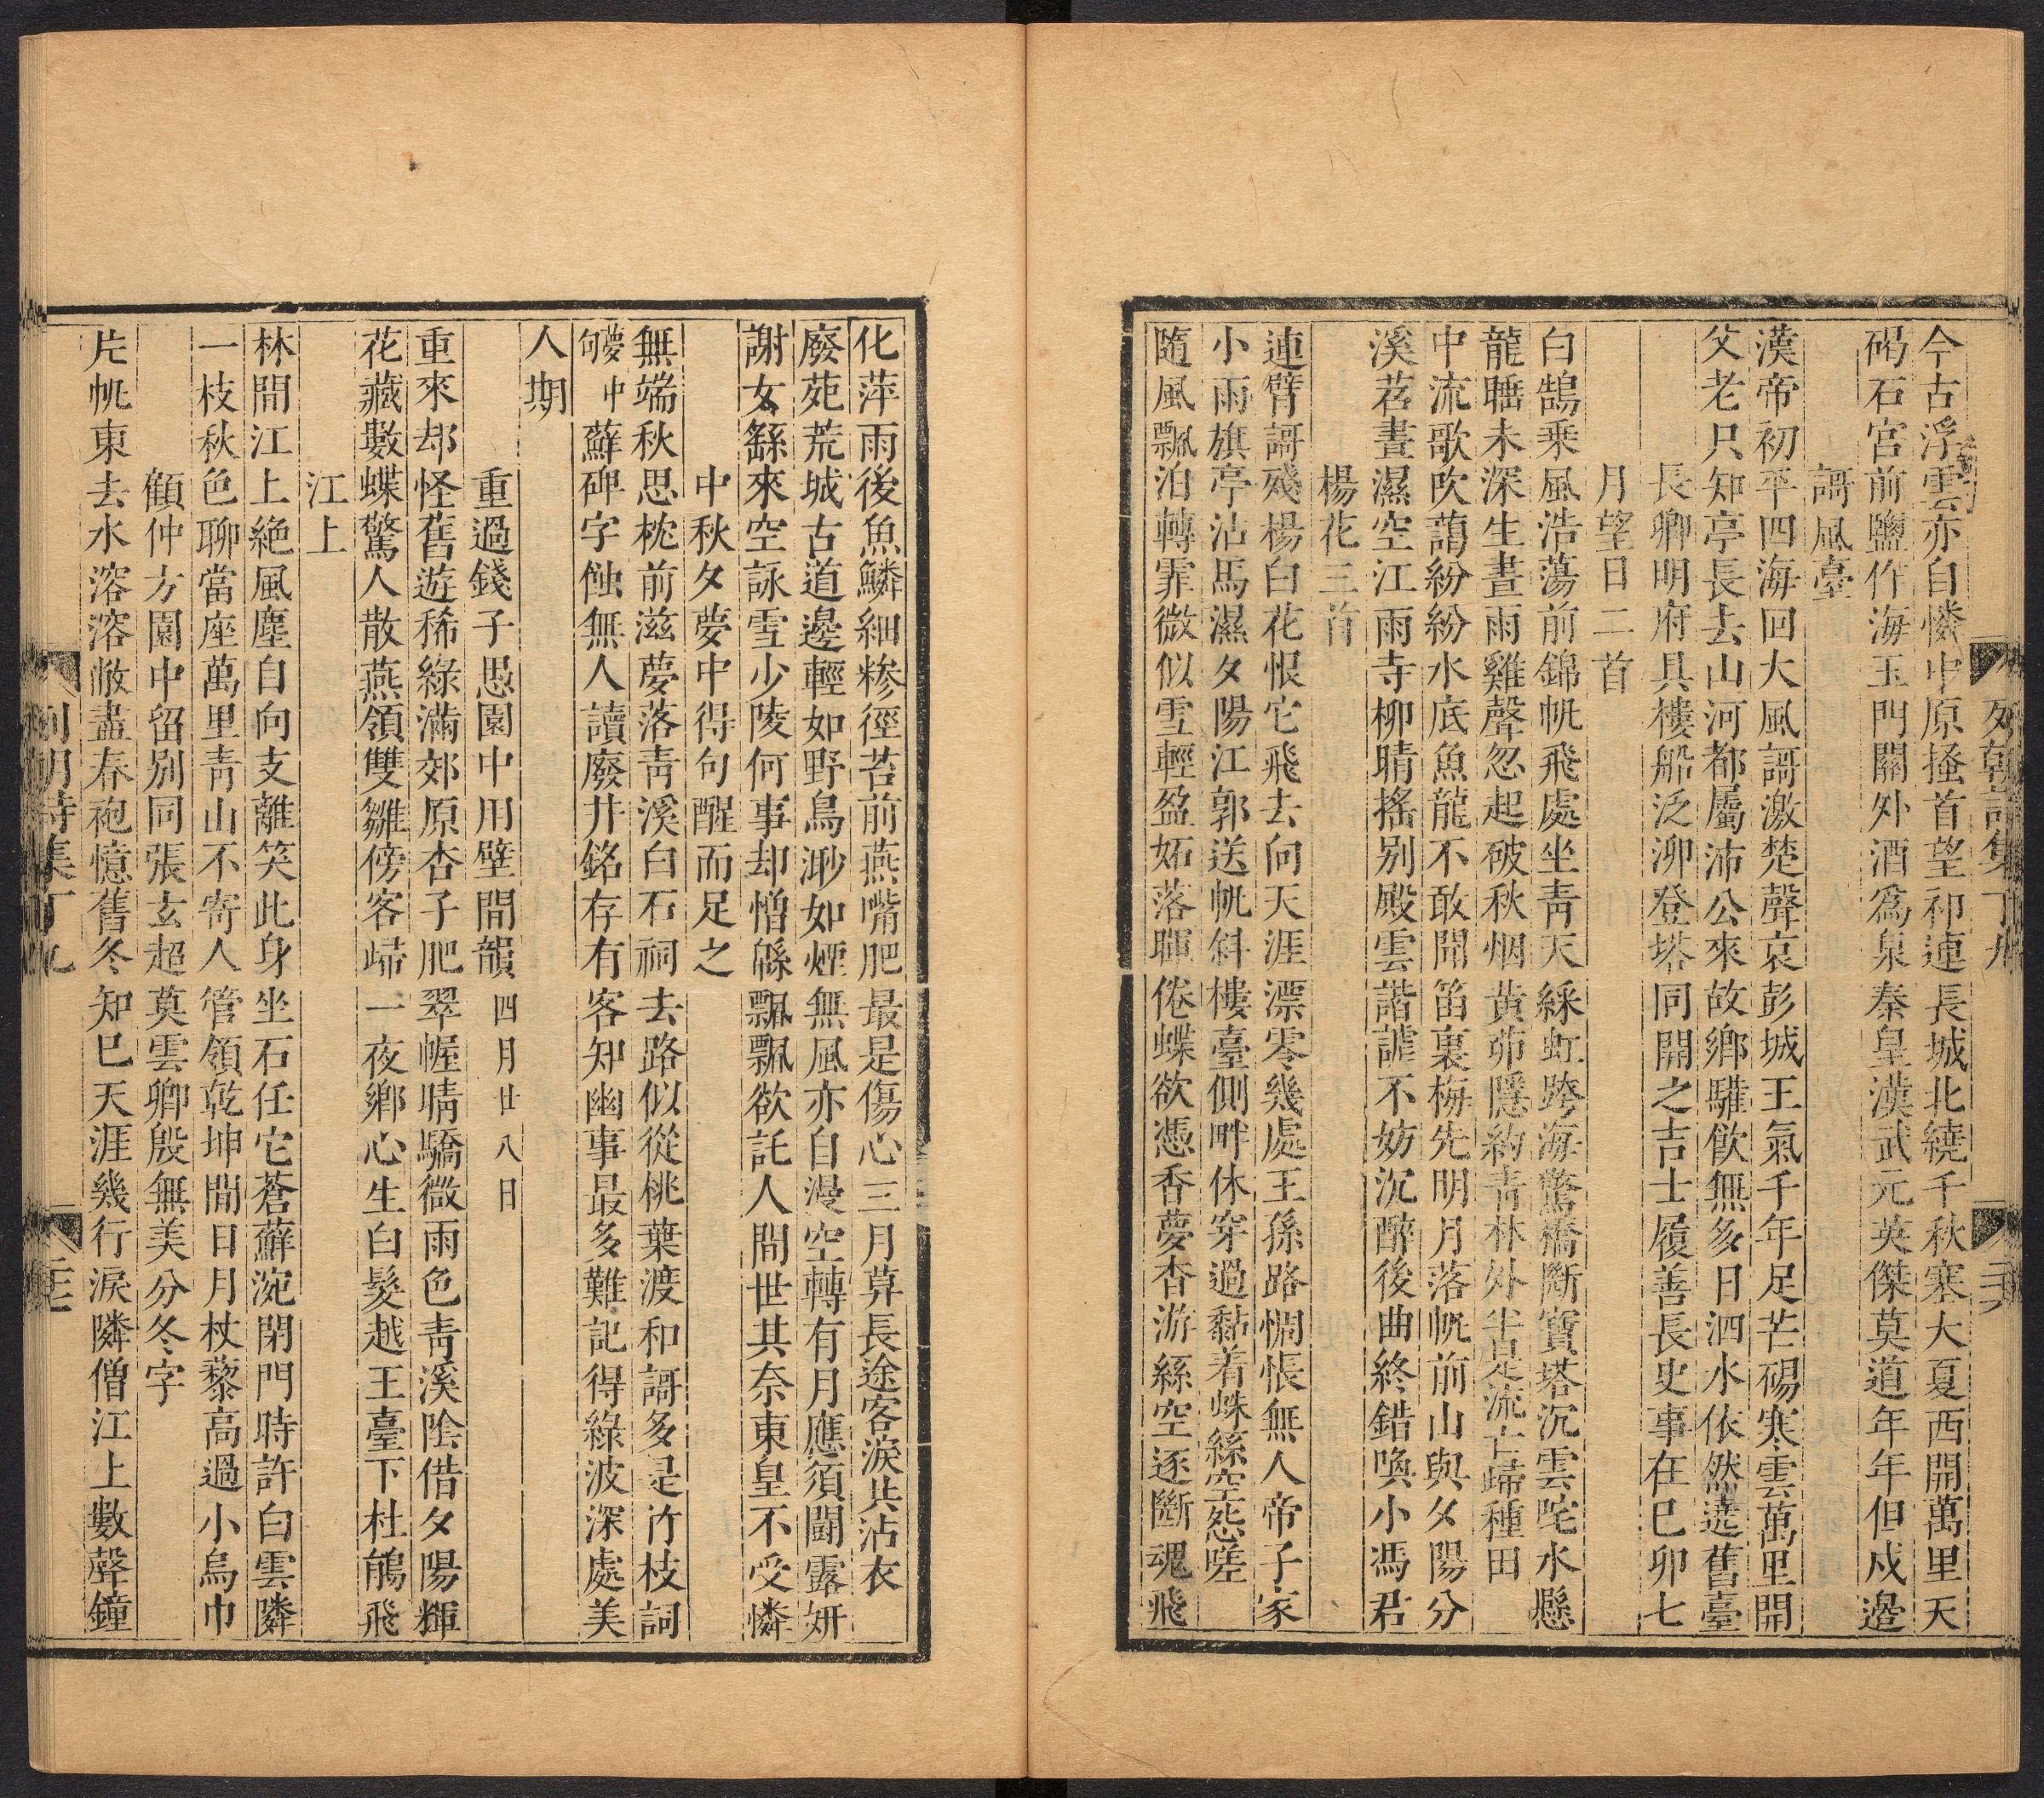 列朝詩集丁九
二十六
今古浮雲亦自憐中原搔首望祁連長城北繞千秋塞大夏西開萬里天
碣石宮前鹽作海玉門關外酒爲泉秦皇漢武元英傑莫道年年但戍邊
謌風臺
漢帝初平四海回大風謌激楚聲哀彭城王氣千年足芒碭寒雲萬里開
父老只知亭長去山河都屬沛公來故鄉驩飲無多日泗水依然遶舊臺
長卿明府具樓船泛泖登塔同開之吉士履善長史事在巳卯七
月望日二首
白鵠乘風浩蕩前錦帆飛處坐靑天綵虹跨海驚橋斷寶塔沉雲咤水懸
龍聽未深生晝雨雞聲忽起破秋烟黃茆隱約靑林外半是流亡歸種田
中流歌吹藹紛紛水底魚龍不敢聞笛裏梅先明月落帆前山與夕陽分
溪茗晝濕空江雨寺柳晴搖别殿雲諧謔不妨沉醉後曲終錯喚小馮君
楊花三首
連臂謌殘楊白花恨它飛去向天涯漂零幾處王孫路惆悵無人帝子家
小雨旗亭沾馬濕夕陽江郭送帆斜樓臺側畔休穿過黏着蛛絲空怨嗟
隨風飄泊轉霏微似雪輕盈妬落暉倦蝶欲憑香夢杳游絲空逐斷魂飛
化萍雨後魚鱗細糝徑苔前燕嘴肥最是傷心三月草長途客淚共沾衣
廢苑荒城古道邊輕如野鳥渺如煙無風亦自漫空轉有月應須鬪露妍
謝女繇來空詠雪少陵何事却憎緜飄飄欲託人間世其奈東皇不受憐
中秋夕夢中得句醒而足之
無端秋思枕前滋夢落靑溪白石祠去路似從桃葉渡和謌多是竹枝詞
夢中句蘇碑字蝕無人讀廢井銘存有客知幽事最多難記得綠波深處美
人期
重過錢子愚園中用壁間韻四月廿八日
重來却怪舊遊稀綠滿郊原杏子肥翠幄晴驕微雨色靑溪陰借夕陽輝
花藏數蝶驚人散燕領雙雛傍客歸一夜鄉心生白髮越王臺下杜鵑飛
江上
林間江上絶風塵自向支離笑此身坐石任它蒼蘚涴閉門時許白雲隣
一枝秋色聊當座萬里靑山不寄人管領乾坤閒日月杖藜高過小烏巾
顧仲方園中留别同張玄超莫雲卿殷無美分冬字
片帆東去水溶溶敝盡春袍憶舊冬知巳天涯幾行淚隣僧江上數聲鐘
列朝詩集丁九
二十七